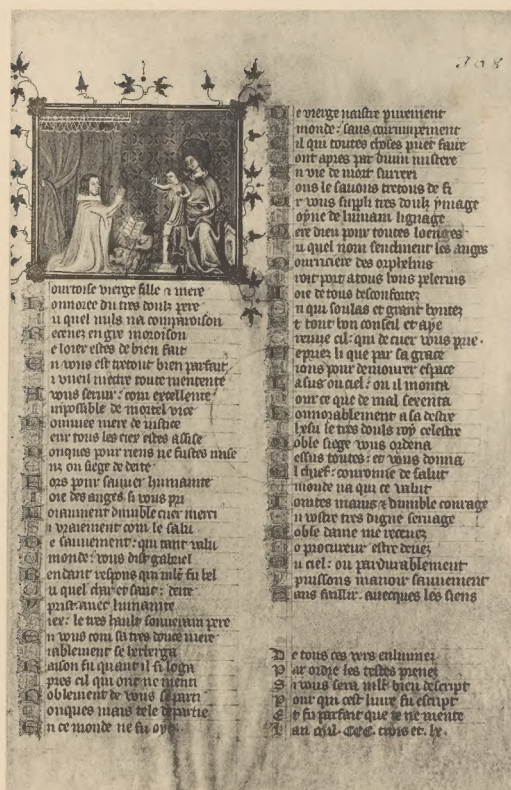 308
Courtoise vierge fille & mere
Honnoree du tres doulz pere
Au quel nuls na comparoison
Recevez en gre moroison
Le loer estes de bien fait
En vous est trestout bien parfait
Si vueil mectre toute mentente
A vous servir : com excellente
Impossible de mortel vice
Nommee mere de justice
Seur tous les ciex estes assise
Nonques pour riens ne fustes mise
Enz ou siege de deite
Fors pour sauver humanite
Ioie des anges si vous pri
Loiaument dumble cuer merci
Si vraiement com le salu
De sauvement : qui tant valu
U monde : vous dist gabriel
Rendant respons qui mlt fu bel
Ou quel char et sanc : deite
Y prist avec humanite
Diex : le tres hault souverain pere
En vous com sa tres douce mere
Fiablement se herberga
Raison fu quant il si loga
Apres cil qui ont ne menti
Noblement de vous se parti
Conques mais tele departie
En ce monde ne fu oye
De vierge naistre purement
U monde : sans corrumpement
Cil qui toutes choses puet faire
Dont apres par divin mistere
En vie de mort surrexi
Nous le savons trestous de fi
Or vous suppli tres doulz ymage
Royne de humain lignage
Mere dieu pour toutes loenges
Au quel nom senclinent les anges
Nourriciere des orphelins
Droit port a tous bons pelerins
Ioie de tous desconfortez
En qui soulas et grant bontez
Et tout bon conseil et aye
Treuve cil : qui de cuer vous prie
Depriez li que par sa grace
Aions pour demourer espace
Lassus ou ciel : ou il monta
Pour ce que de mal seventa
Honnorablement a sa destre
Ihesu le tres douls roy celestre
Noble siege vous ordena
Dessus toutes : et vous donna
El chief : couronne de salut
U monde na qui ce valut
Iointes mains & dumble courage
En vostre tres digne servage
Noble dame me recevez
No procureur estre devez
Ou ciel : ou pardurablement
Y puissons manoir sauvement
Sans faillir . avecques les siens
De tous ces vers enluminez
Par ordre les testes prenez
Si vous sera mlt bien descript
Pour qui cest livre fu escript
Et fu parfait que je ne mente
Lan mil . CCC . trois et . lx .